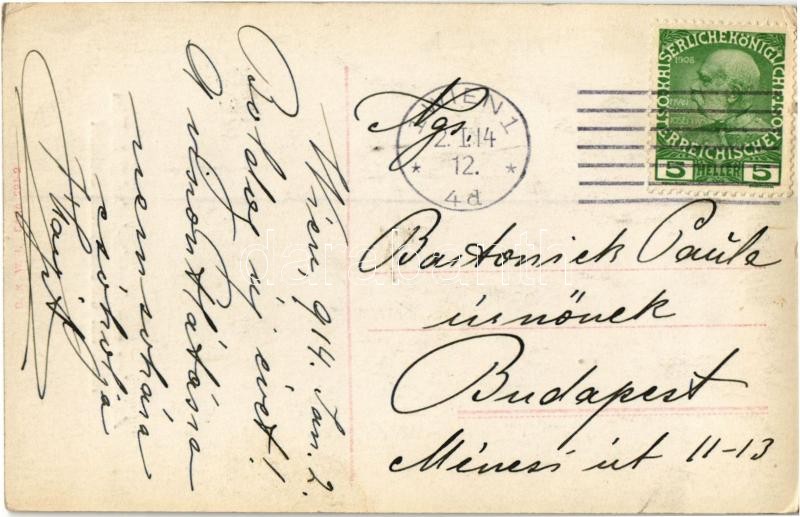 Wien, 914. Jan. 2.
Boldog új évet!
A viszontlátásra
nemsokára
csókolja
Margit
Ngs.
Bartonick Paula
úrnőnek
Budapest
Ménesi út 11-13
WIEN 1
2. I. 14
12.
* *
4d
KAISERLICHEKÖNIGLICHE
ÖSTERREICHISCHE POST
1908
5 HELLER 5
darabanth